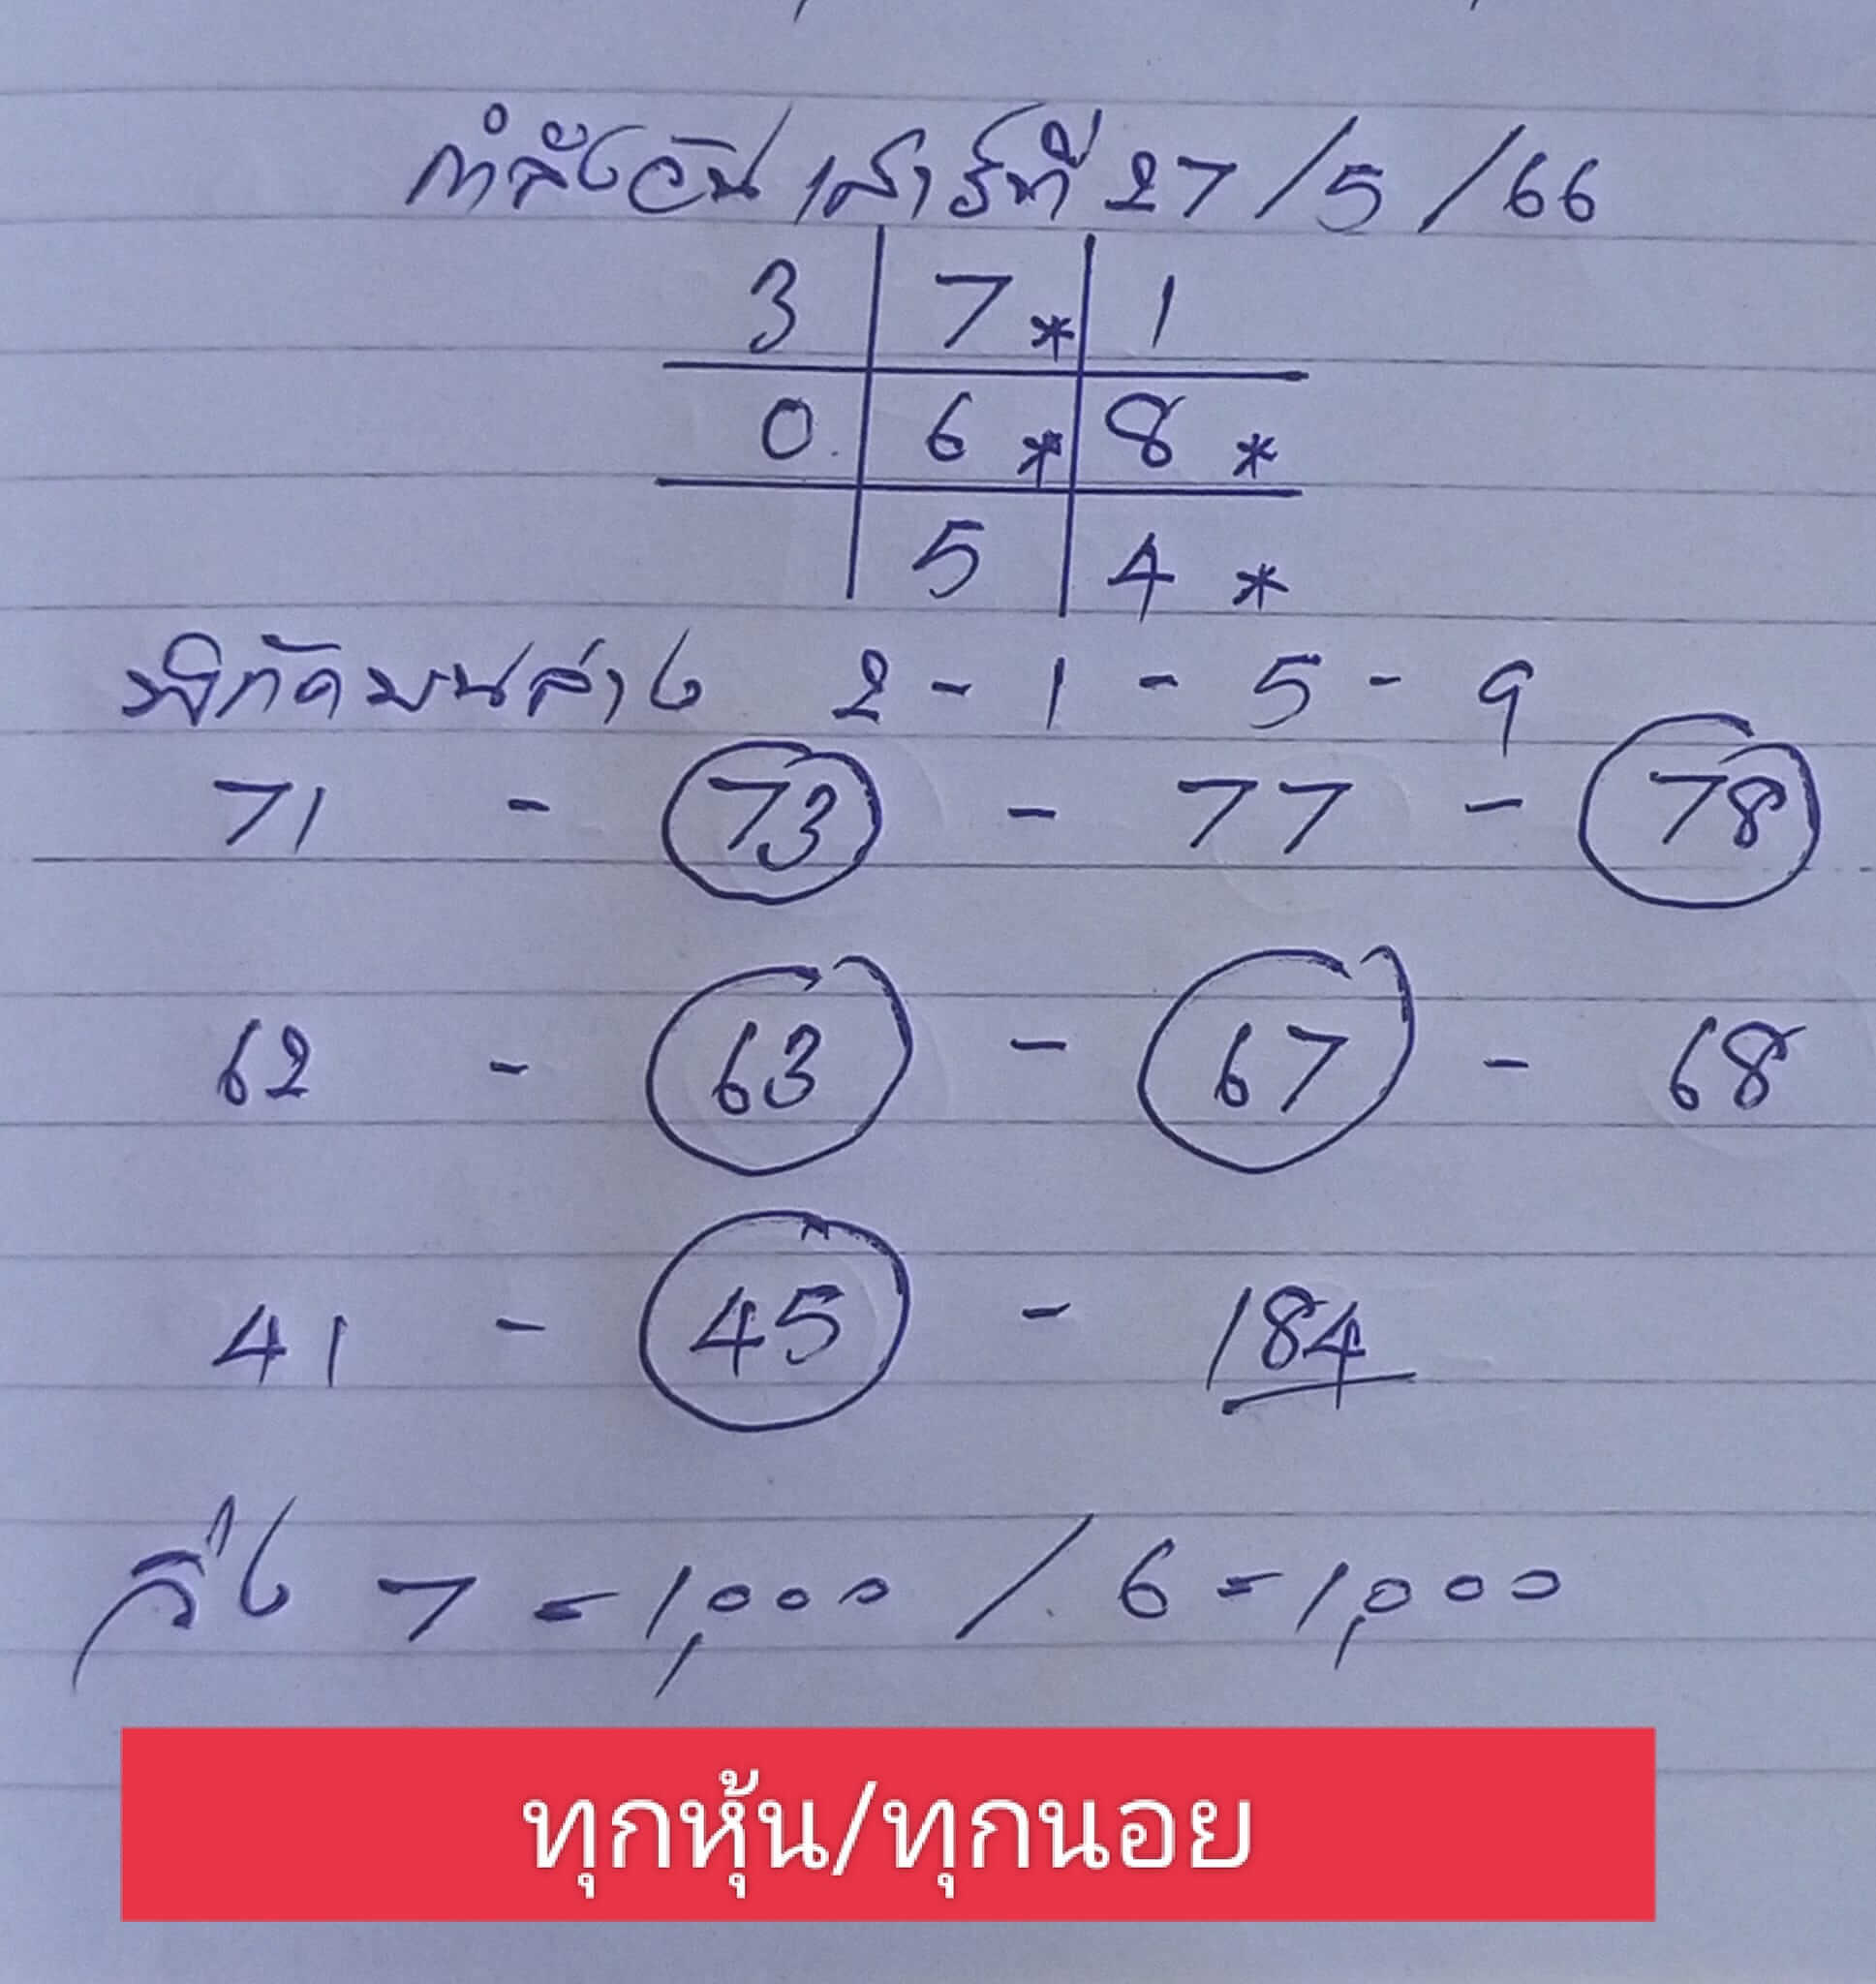 กำลังวันเสาร์ที่ 27/5/66
3 7* 1
0 6* 8*
5 4*
พิกัดบนล่าง 2 - 1 - 5 - 9
71 - 73 - 77 - 78
62 - 63 - 67 - 68
41 - 45 - 184
วิ่ง 7 = 1,000 / 6 = 1,000
ทุกหุ้น/ทุกนอย